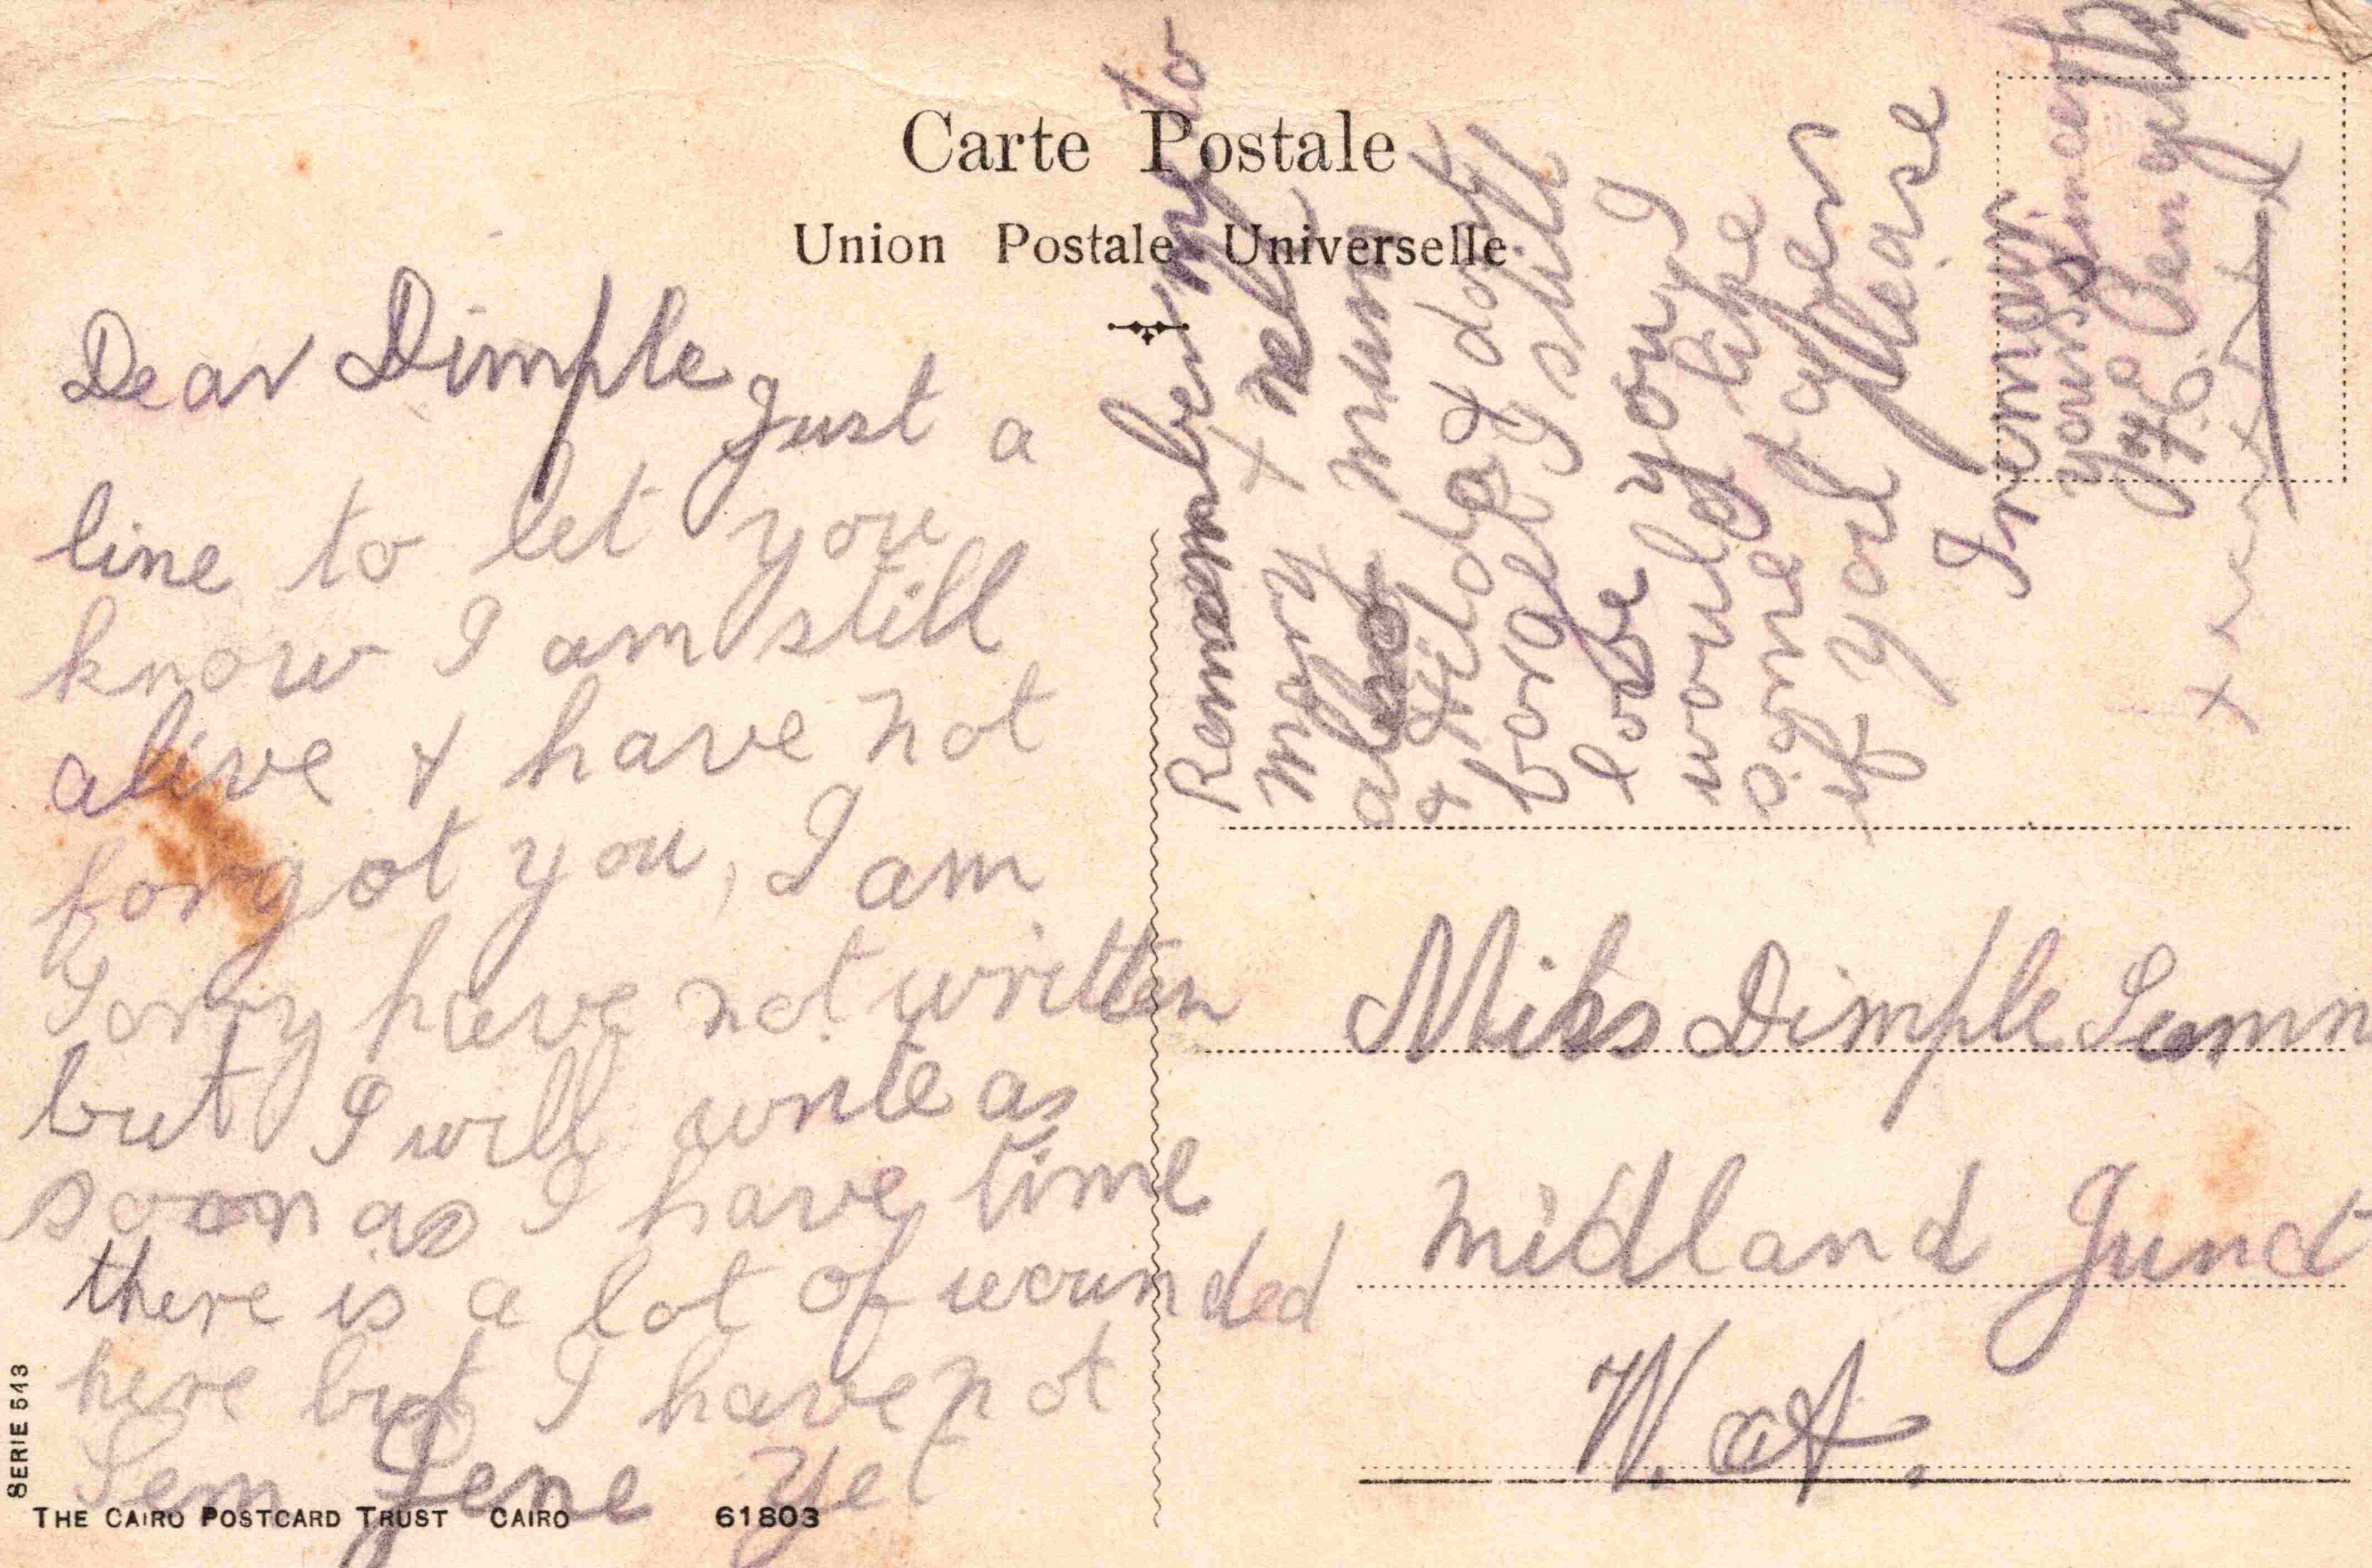 Carte Postale
Union Postale Universelle
Dear Dimple Just a
line to let you
know I am still
alive & have not
forgot you, I am
Sorry have not written
but I will write as
soon as I have time
there is a lot of wounded
here but I have not
Sem Gene yet
Remember my to
mary + nell
also mum
& Hilda & dont
forget I still
love you I
would like
ogne + a pen
if you please
I remain
yours Sincerely
Jya Pengelly
746
x x x x x x x
Miss Dimple Sumn
Midland Junct
W. A.
SERIE 543
THE CAIRO POSTCARD TRUST CAIRO 61803